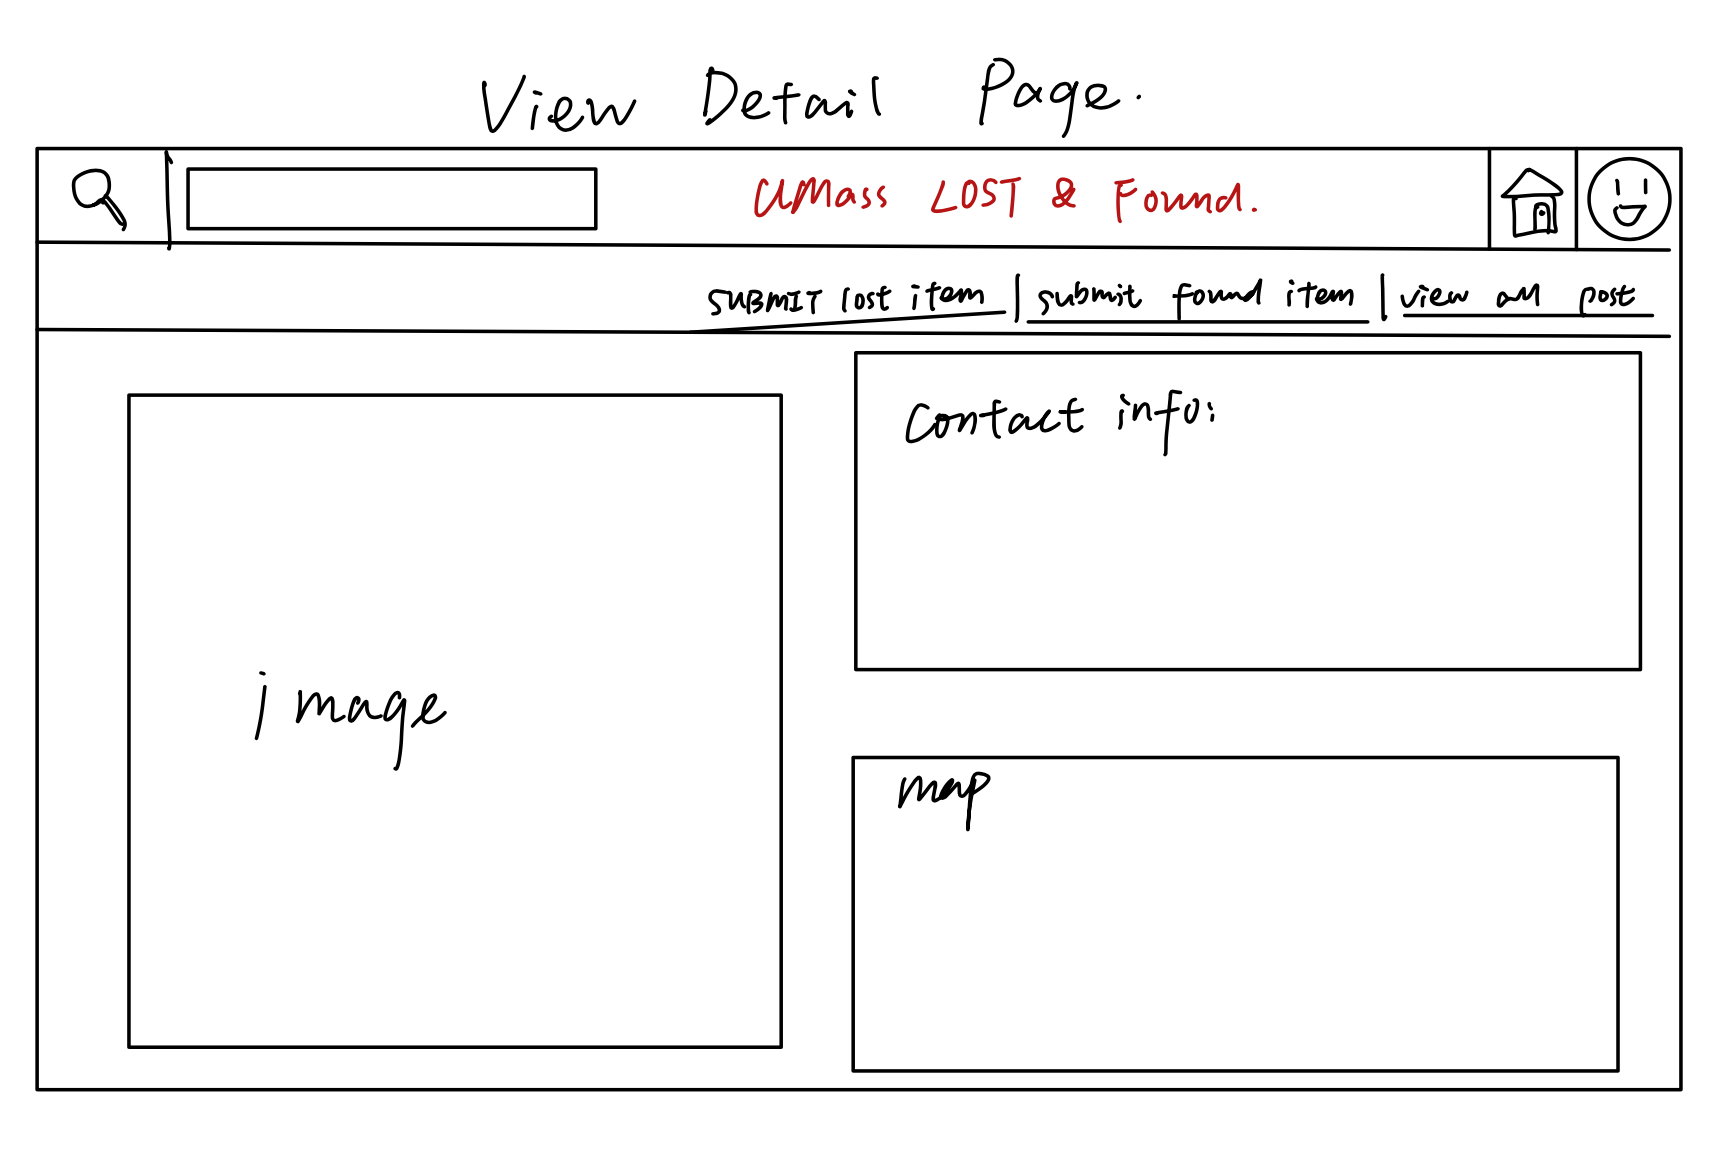 View Detail Page.
UMass LOST & Found.
SUBMIT lost item | submit found item | view all post
Contact info:
image
map